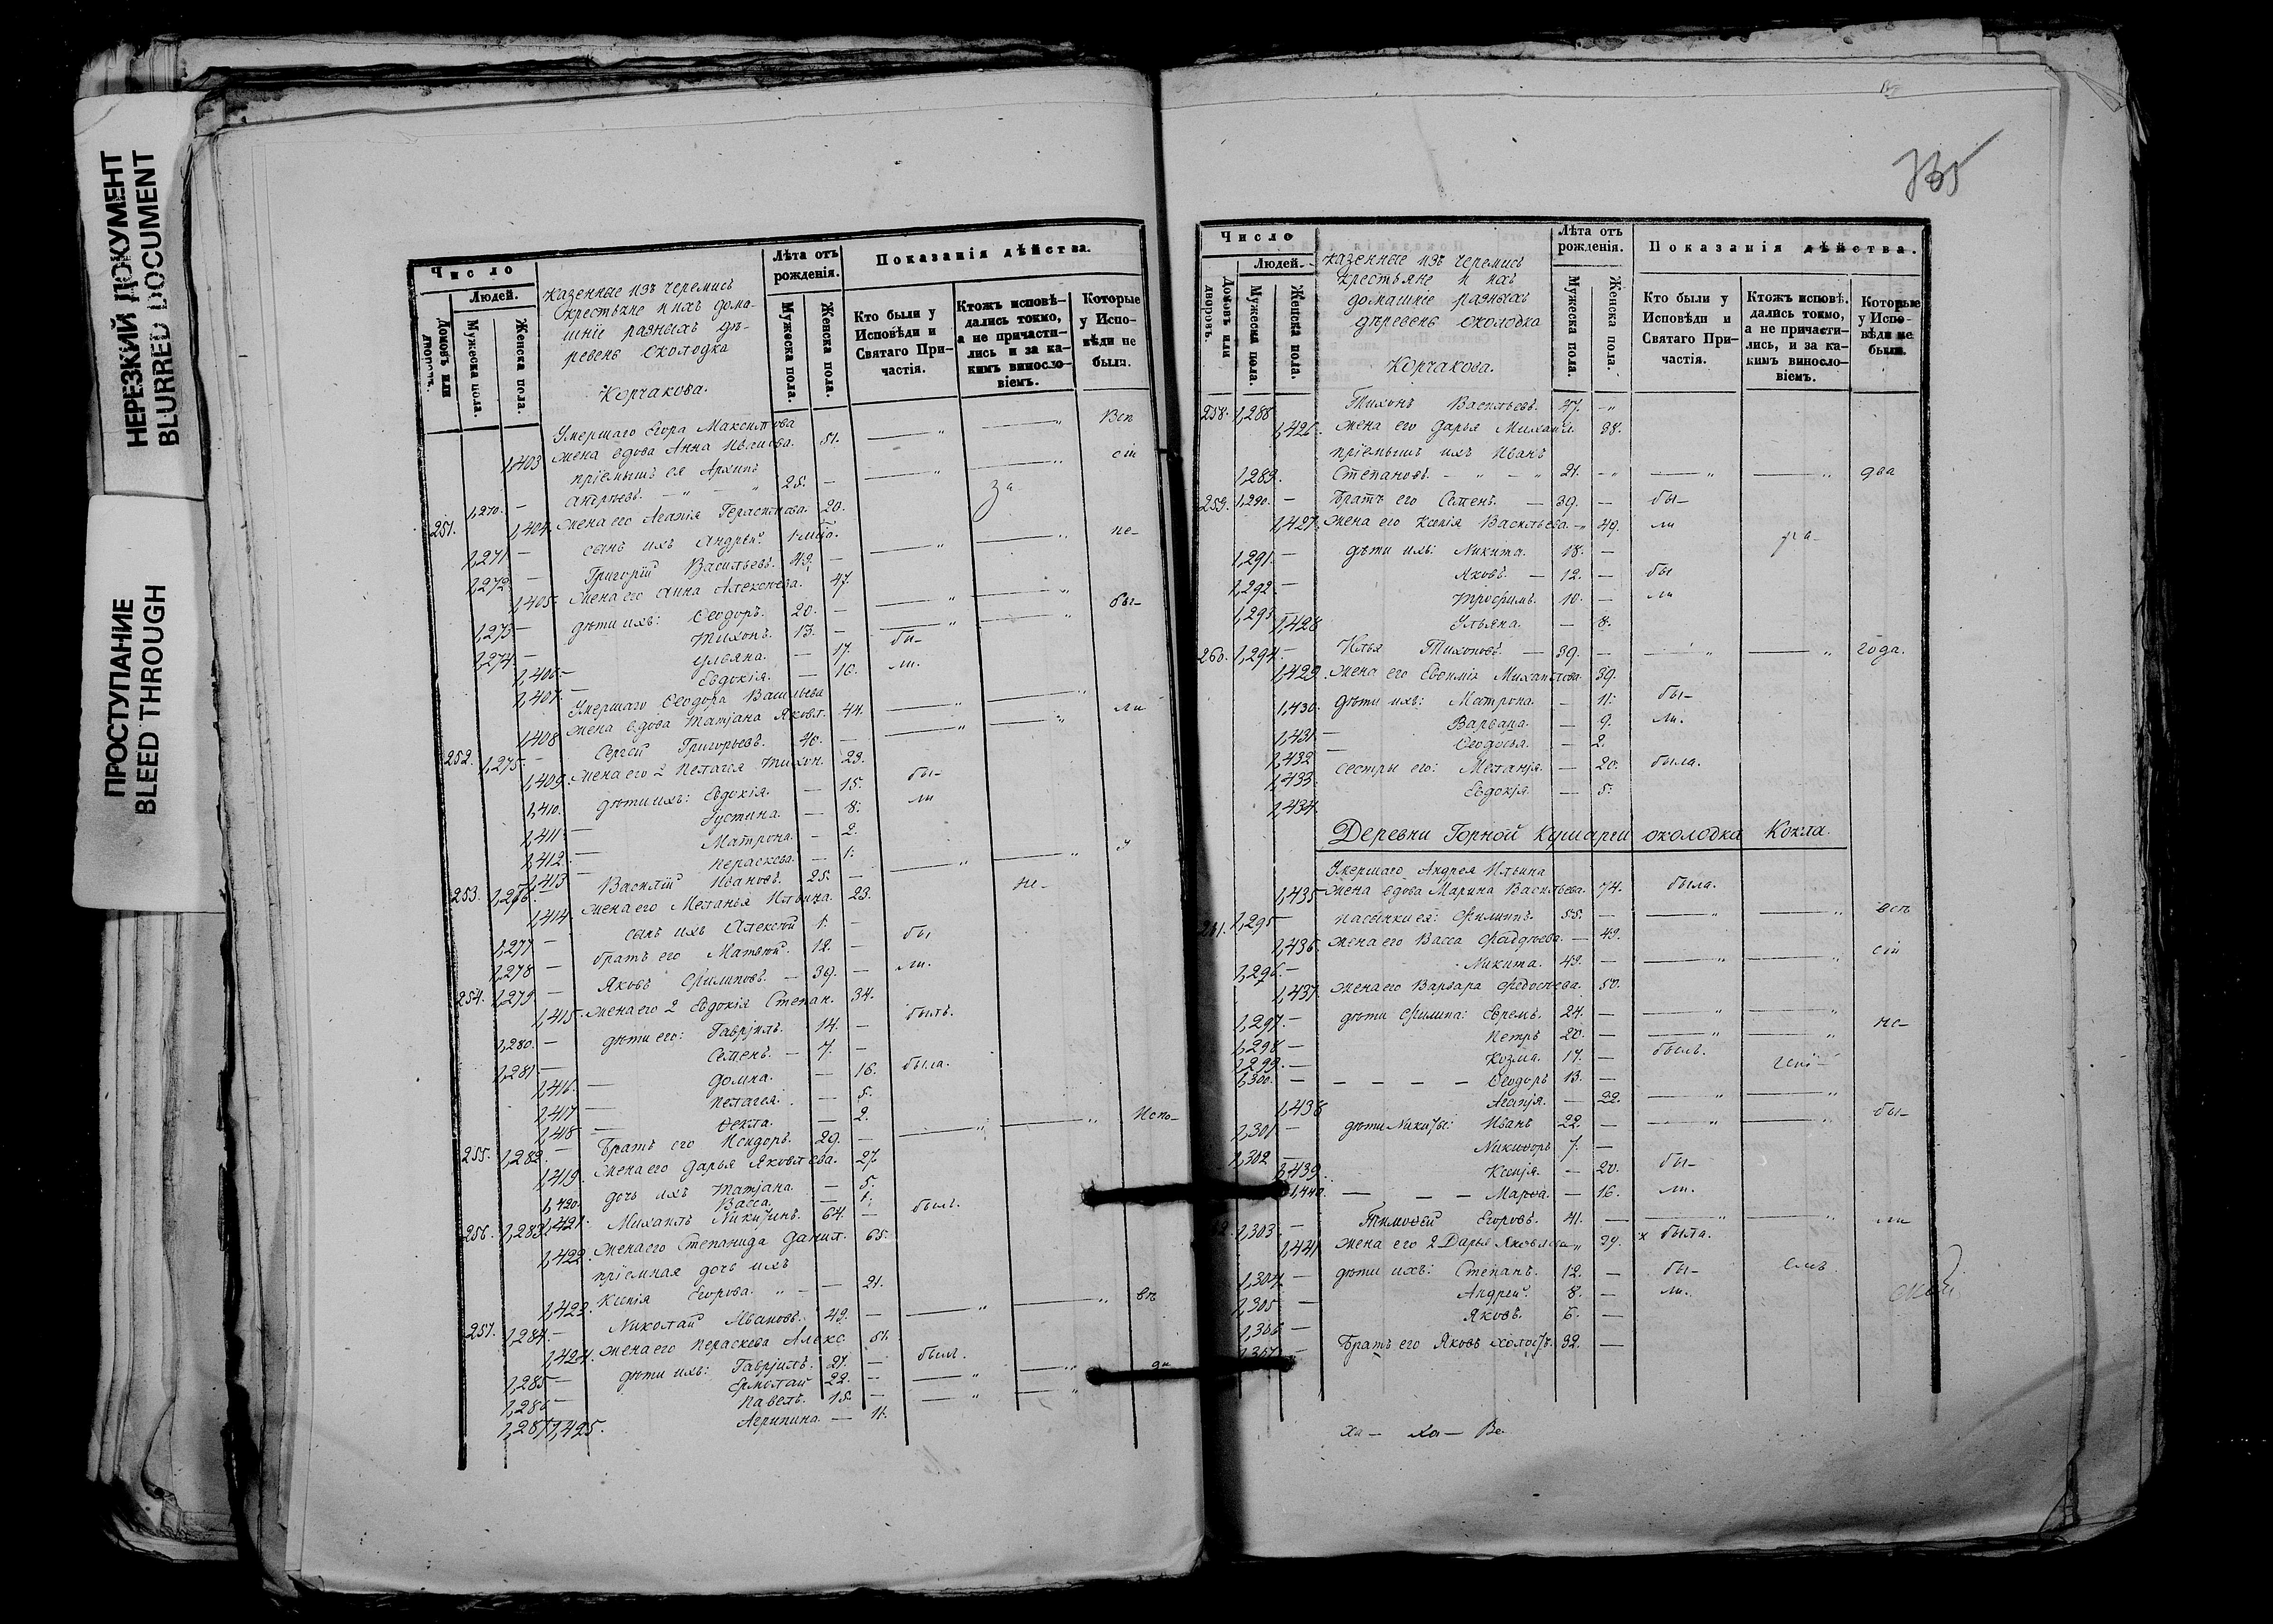 НЕРЕЗКИЙ ДОКУМЕНТ
BLURRED DOCUMENT
ПРОСТУПАНИЕ
BLEED THROUGH
Число
Людей.
Домовъ или дворовъ.
Мужеска пола.
Женска пола.
казенные изъ черемисъ
крестьяне и ихъ дома-
шніе разныхъ де-
ревень околодка
Корчакова.
Лѣта отъ рожденія.
Мужеска пола.
Женска пола.
Показанія дѣйства.
Кто были у Исповѣди и Святаго Причастія.
Ктожъ исповѣдались токмо, а не причастились и за какимъ винословіемъ.
Которые у Исповѣди не были.
Умершаго Егора Максимова Всѣ
1,403 жена вдова Анна 51.
пріемышъ ея Архипъ сіи
1,270. — Андреевъ. — 25. — за
251. 1,404. жена его Агапія Герасимова. 20.
1,271 — сынъ ихъ Андрей. не-
1,272. — Григорій Васильевъ. 49. —
1,405. жена его Анна Алексеева. 47.
1,273 — дѣти ихъ: Ѳеодоръ. 20. — бы-
1,274. — Тихонъ. 13. — бы-
1,406. — Ульяна. — 17. ли.
1,407. — Евдокія. — 16.
Умершаго Ѳеодора Васильева
1,408 жена вдова Татіана Яковл. 44. ли
252. 1,275. — Сергей Григорьевъ. 40. —
1,409. жена его 2 Пелагея Тихон. 23.
1,410. дѣти ихъ: Евдокія. — 15. бы-
1,411. — Іустина. — 8. ли
1,412. — Матрона. — 2.
1,413 — Пераскева. — 1. у
253. 1,276. Василій Ивановъ. 25. —
1,414 жена его Меланья Ильина. 23. не-
1,277 — сынъ ихъ Алексѣй 1. —
1,278 — братъ его Матвей. 12. — бы
254. 1,279. — Яковъ Филиповъ. — 39. — ли.
1,415. жена его 2 Евдокія Степан. 34.
1,280. — дѣти его: Гавріилъ. 14. — былъ.
1,281 — Семенъ. — 7. —
1,416. — Домна. — 16. была.
1,417 — Пелагея. — 5.
1,418 — Ѳекла. — 2.
255. 1,282. — Братъ его Исидоръ. 29. — Испо-
1,419. жена его Дарья Яковлева. 27.
1,420. дочь ихъ Татіана. — 5.
1,421. Васса. — 1.
256. 1,283. Михаилъ Никитинъ. 64. — былъ.
1,422. жена его Степанида Данил. 65.
пріемная дочь ихъ
1,423. Ксенія Егорова. — 21.
257. 1,284. — Николай Ивановъ. 49. — вѣ
1,424. жена его Пераскева Алекс. 51.
1,285 — дѣти ихъ: Гавріилъ. 27. — былъ.
1,286 — Ермолай 22. — ди
1,287 Павелъ. 15. —
1,425. Агрипина. — 11.
735
Число
Людей.
Домовъ или дворовъ.
Мужеска пола.
Женска пола.
казенные изъ черемисъ
крестьяне и ихъ
домашніе разныхъ
деревень околодка
Корчакова.
Лѣта отъ рожденія.
Мужеска пола.
Женска пола.
Показанія дѣйства.
Кто были у Исповѣди и Святаго Причастія.
Ктожъ исповѣдались токмо, а не причастились, и за какимъ винословіемъ.
Которые у Исповѣди не были.
258. 1,288 Тихонъ Васильевъ. 47. —
1,426. жена его Дарья Михаил. 38.
пріемышъ ихъ Иванъ
1,289. Степановъ. — 21. — два
259. 1,290. — Братъ его Семенъ. — 39. — бы-
1,427. жена его Ксенія Васильева. — 40. ли
1,291 — дѣти ихъ: Никита. 18. — ра-
1,292. — Яковъ. — 12. — бы
1,293 — Трофимъ. 10. — ли
1,428 Ульяна. — 8.
260. 1,294. — Илья Тихоновъ. — 39. — года.
1,429. жена его Евѳимія Михаилова. 39.
1,430. дѣти ихъ: Матрона. — 11. бы-
1,431 — Варвара. — 9. ли.
1,432 Ѳеодосья. — 2.
1,433 сестры его: Меланія. — 20. была.
1,434. Евдокія. — 5.
Деревни Горной Кумарги околодка Кокла.
Умершаго Андрея Ильина
1,435 жена вдова Марина Васильева. 74. была.
261. 1,295 — пасынки ея: Филипъ. 55. — всѣ
1,436. жена его Васса Фаддеева. — 49.
1,296. — Никита. 49. — сіи
1,437. жена его Варвара Федосеева. 50.
1,297. — дѣти Филипа: Ефремъ. 24. —
1,298 — Петръ 20. — не-
1,299. — Козма. 17. — былъ.
1,300. — — — — — Ѳеодоръ 13. —
1,438 Агапія. — 22.
1,301 — дѣти Никиты: Иванъ 22. — бы-
1,302 — Никифоръ 7. —
1,439. Ксенія. — 20. бы-
1,440. — — — Марѳа. — 16. ли.
1,303. — Тимоѳей Егоровъ. 41. — ли
1,441 жена его 2 Дарья Яковлева 39. х была.
1,304. — дѣти ихъ: Степанъ. 12. — бы-
1,305 — Андрей. 8. — ли.
1,306 — Яковъ. 6. —
1,307 — Братъ его Яковъ холостъ. 32. —